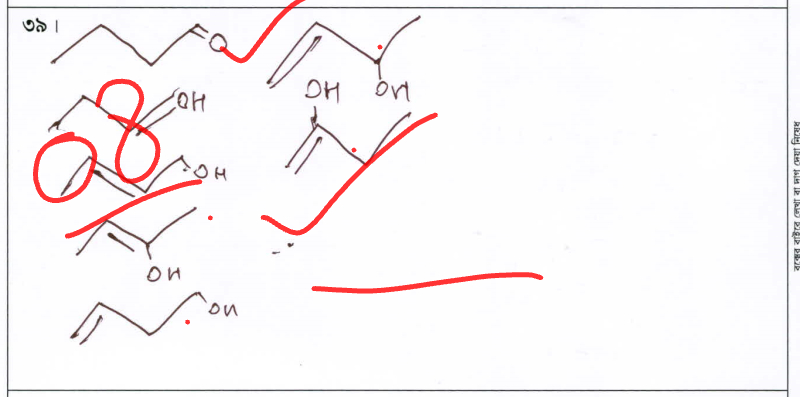 ৩৯।
O
OH
OH
OH
OH
OH
OH
বক্সের বাইরে লেখা বা দাগ দেয়া নিষেধ